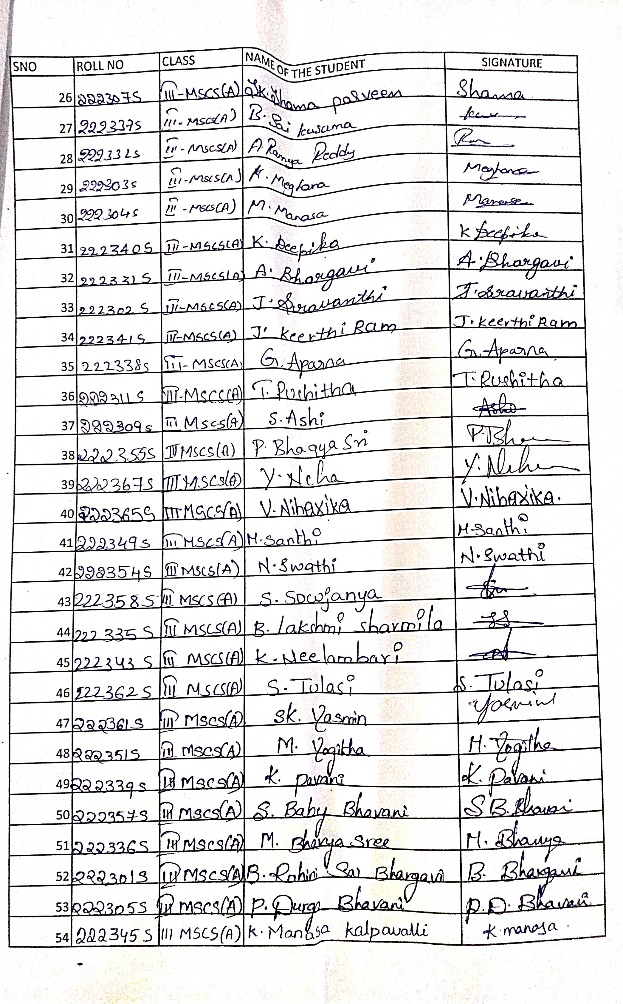 SNO ROLL NO CLASS NAME OF THE STUDENT SIGNATURE
26 222307S III-MSCS(A) Sk.Shama parveen Shama
27 222337S III-MSCS(A) B. Sai kusuma
28 222332S III-MSCS(A) A.Ramya Reddy
29 222303S III-MSCS(A) K. Meghana Meghana
30 222304S III-MSCS(A) M. Manasa Manasa
31 222340S III-MSCS(A) K. Deepika K Deepika
32 222331S III-MSCS(A) A. Bhargavi A. Bhargavi
33 222302S III-MSCS(A) J. Sravanthi J. Sravanthi
34 222341S III-MSCS(A) J. Keerthi Ram J. Keerthi Ram
35 222338S III-MSCS(A) G. Aparna G. Aparna
36 222311S III-MSCS(A) T. Rushitha T. Rushitha
37 222309S III MSCS(A) S. Ashi
38 222355S III MSCS(A) P. Bhagya Sri P.Bh
39 222367S III MSCS(A) Y. Neha Y. Neha
40 222365S III MSCS(A) V. Niharika V. Niharika.
41 222349S III MSCS(A) M. Santhi M. Santhi
42 222354S III MSCS(A) N. Swathi N. Swathi
43 222358S III MSCS(A) S. Sowjanya
44 222335S III MSCS(A) B. lakshmi sharmila
45 222343S III MSCS(A) K. Neelambari
46 222362S III MSCS(A) S. Tulasi S. Tulasi
47 222361S III MSCS(A) SK. Yasmin Yasmin
48 222351S III MSCS(A) M. Yogitha M. Yogitha
49 222339S III MSCS(A) K. pavani K. Pavani
50 222357S III MSCS(A) S. Baby Bhavani S B. Bhavani
51 222336S III MSCS(A) M. Bhavya Sree M. Bhavya
52 222301S III MSCS(A) B. Rohini Sai Bhargavi B. Bhargavi
53 222305S III MSCS(A) P. Durga Bhavani P.D. Bhavani
54 222345S III MSCS(A) K. Manasa kalpavalli K. manasa.